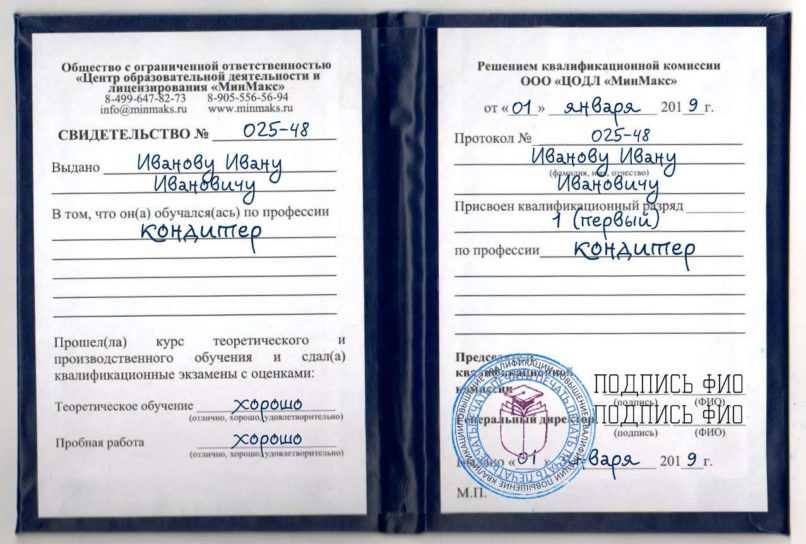 Общество с ограниченной ответственностью
«Центр образовательной деятельности и
лицензирования «МинМакс»
8-499-647-82-73 8-905-556-56-94
info@minmaks.ru www.minmaks.ru
СВИДЕТЕЛЬСТВО № 025-48
Выдано Иванову Ивану
Ивановичу
В том, что он(а) обучался(ась) по профессии
кондитер
Прошел(ла) курс теоретического и
производственного обучения и сдал(а)
квалификационные экзамены с оценками:
Теоретическое обучение хорошо
(отлично, хорошо, удовлетворительно)
Пробная работа хорошо
(отлично, хорошо, удовлетворительно)
Решением квалификационной комиссии
ООО «ЦОДЛ «МинМакс»
от «01» января 2019 г.
Протокол № 025-48
Иванову Ивану
(фамилия, имя, отчество)
Ивановичу
Присвоен квалификационный разряд
1 (первый)
по профессии кондитер
Председатель
квалификационной
комиссии ПОДПИСЬ ФИО
(подпись) (ФИО)
Генеральный директор ПОДПИСЬ ФИО
(подпись) (ФИО)
Выдано «01» января 2019 г.
М.П.